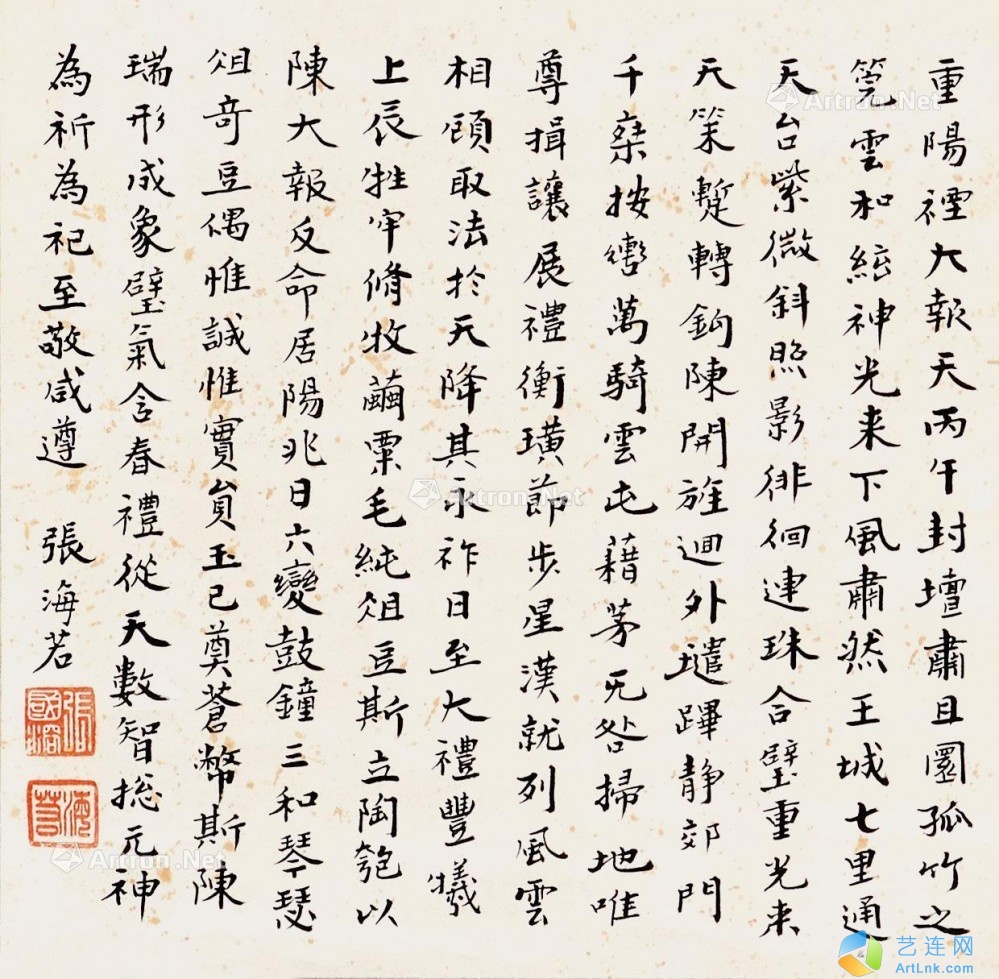 重陽禋大報天丙午封壇肅且圜孤竹之
筦雲和絃神光来下風肅然王城七里通
天台紫微斜照影徘徊連珠合璧重光来
天策蹔轉鉤陳開旌迴外壝蹕静郊門
千乗按轡萬騎雲屯藉茅无咎掃地唯
尊揖讓展禮衡璜節步星漢就列風雲
相顧取法於天降其永祚日至大禮豐犧
上辰牲牢脩牧繭粟毛純俎豆斯立陶匏以
陳大報反命居陽兆日六變鼓鐘三和琴瑟
俎奇豆偶惟誠惟實員玉已奠蒼幣斯陳
瑞形成象璧氣含春禮從天數智捴元神
為祈為祀至敬咸遵 張海若
張國溶
海若
Artron.Net
Artron.Net
Artron.Net
Artron.Net
艺连网
ArtLnk.com